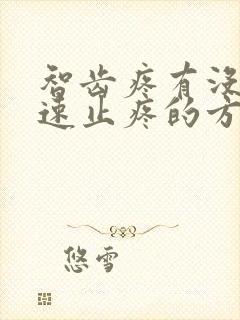 智齿疼有没
速止疼的方
悠雪